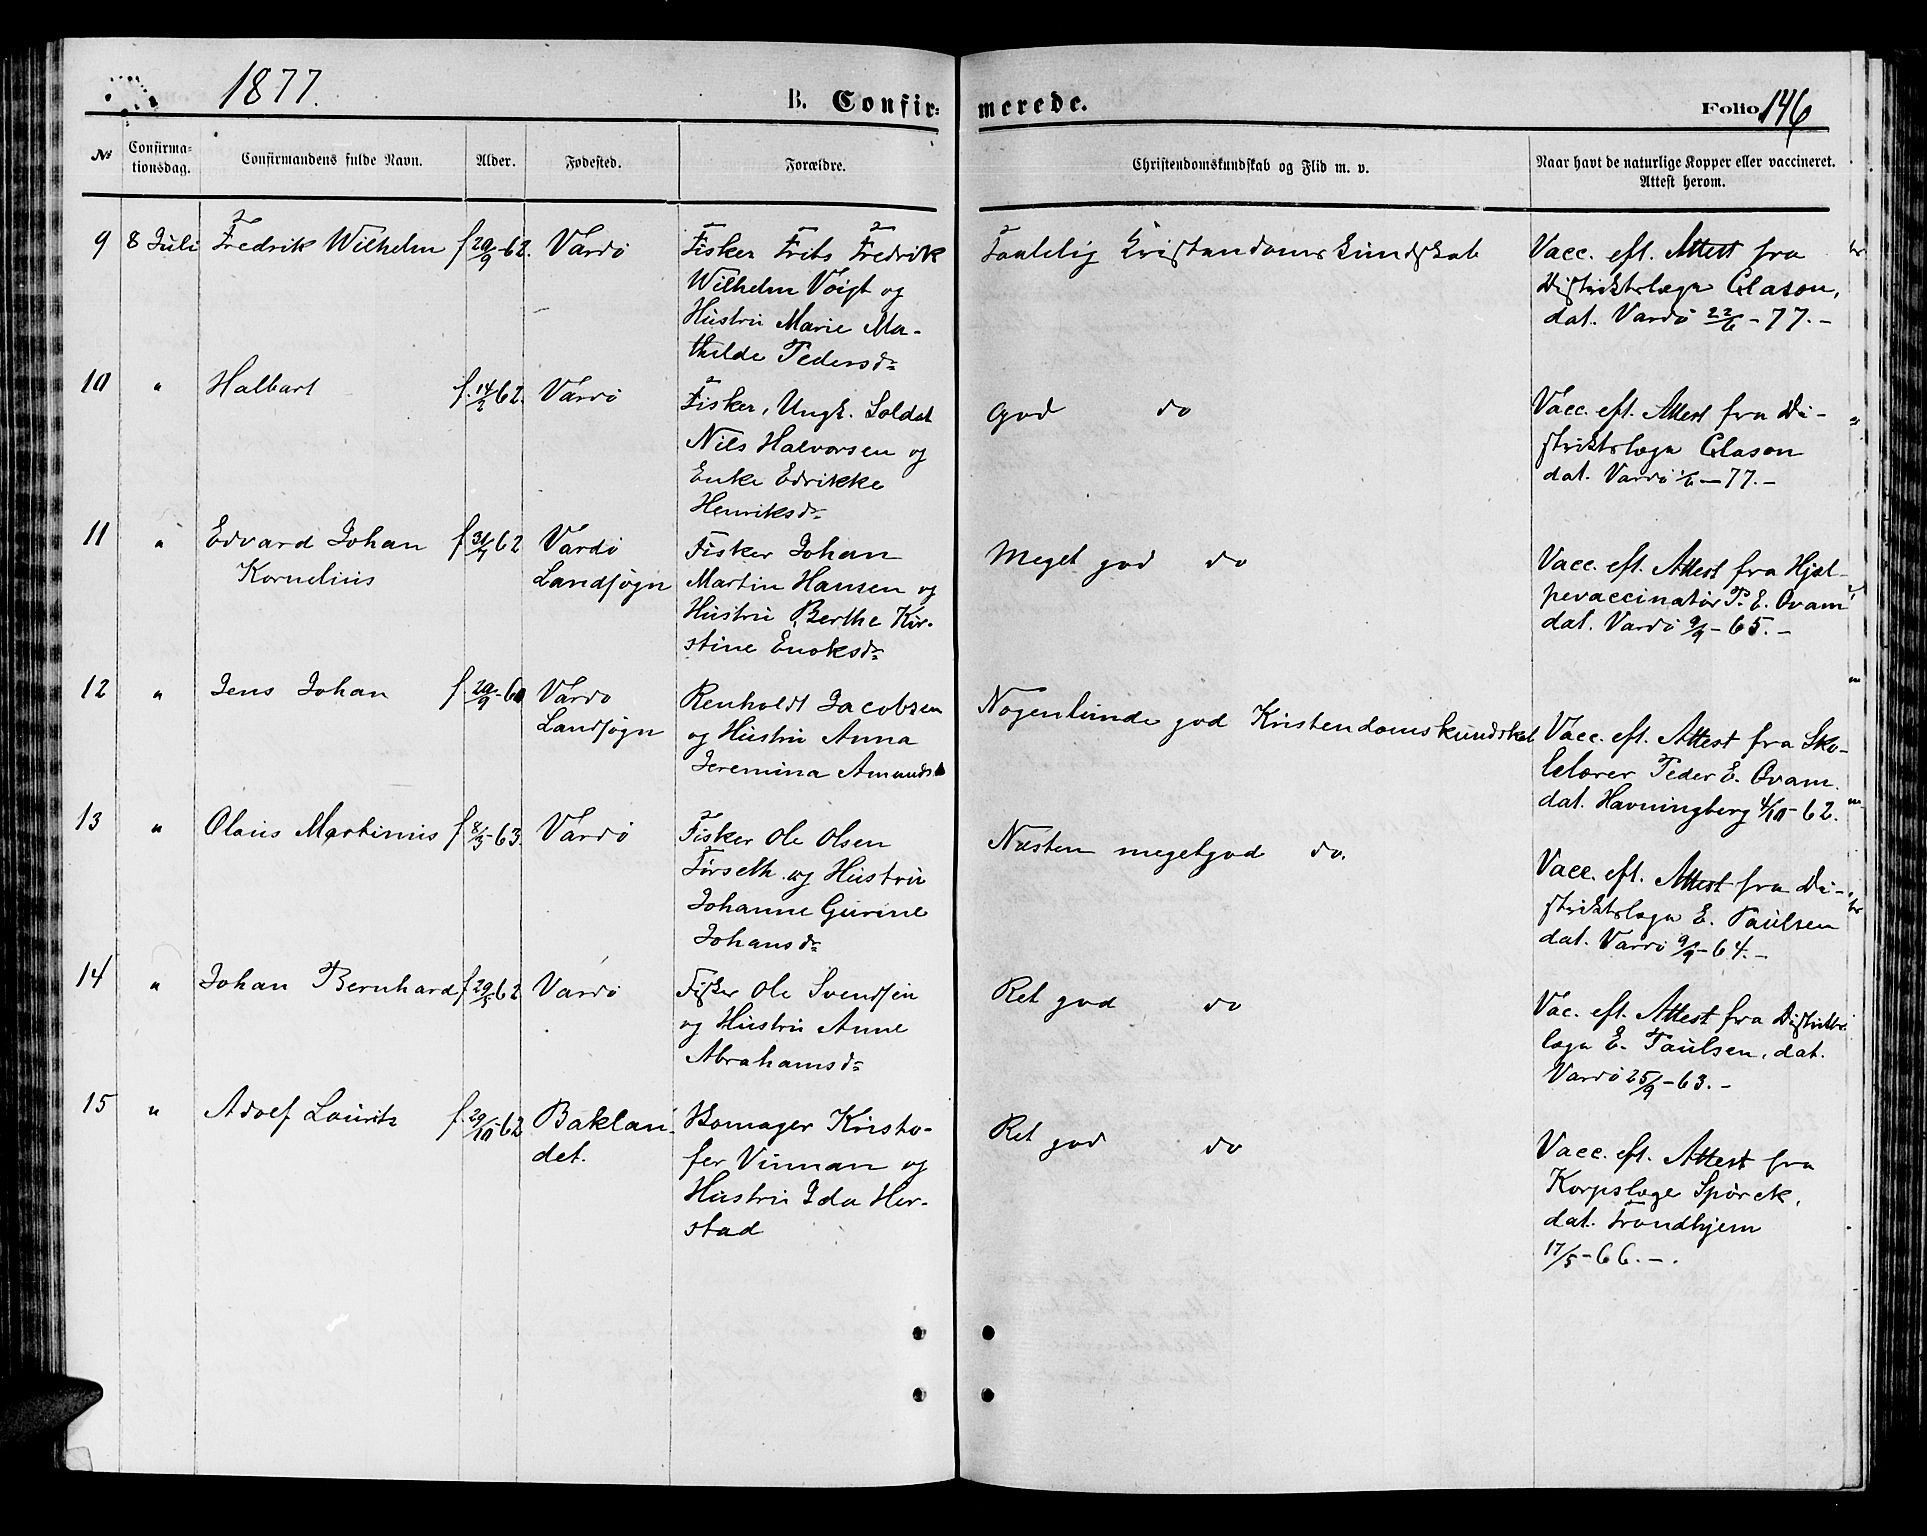 1877.
B. Confirmerede.
Folio 146
No
Confirmationsdag.
Confirmandens fulde Navn.
Alder.
Fødested.
Forældre.
Christendomskundskab og Flid m. v.
Naar havt de naturlige Kopper eller vaccineret.
Attest herom.
9 8 Juli Fredrik Wilhelm f 29/9-62. Vardø
Fisker Frits Fredrik
Wilhelm Voigt og
Hustru Marie Ma-
thilde Pedersdr
Taalelig Kristendomskundskab
Vacc. eft. Attest fra
Distriktslæge Clason,
dat. Vardø 22/6-77.-
10 " Halbart f. 14/2 62. Vardø
Fisker, Ungk. Soldat
Nils Halvorsen og
Enke Edrikke
Henriksdr
God do
Vacc. eft. Attest fra Di-
striktslæge Clason
dat. Vardø 1/6-77.-
11 " Edvard Johan
Kornelius
f 62
Vardø
Landsogn
Fisker Johan
Martin Hansen og
Hustru Berthe Kir-
stine Enoksdr
Meget god do
Vacc. eft. Attest fra Hjæl-
pevaccinatør P. E. Qvam
dat. Vardø 9/9-65.-
12 " Jens Johan f. 29/9-60
Vardø
Landsogn
Renholdt Jacobsen
og Hustru Anna
Jeremina
Nogenlunde god Kristendomskundskab
Vacc. eft. Attest fra Sko-
lelærer Peder E. Qvam.
dat. Havningberg 4/10-62.
13 " Olaus Martinius f 8/3-63. Vardø
Fisker Ole Olsen
Førseth og Hustru
Johanne Gurine
Johansdr
Næsten megetgod do.
Vacc. eft. Attest fra Di-
striktslæge E. Paulsen
dat. Vardø 9/9-64.-
14 " Johan Bernhard f 29/5 62 Vardø
Fisker Ole Svendsen
og Hustru Anne
Abrahamsdr
Ret god do
Vac. eft. Attest fra Distrikts-
læge E. Paulsen, dat.
Vardø 25/9-63.-
15 " Adolf Lauritz f. 29/10-62
Baklan-
det.
Kristo-
fer Vinman og
Hustru Ida Her-
stad
Ret god do
Vacc. eft. Attest fra
Korpslæge Spørck,
dat. Trondhjem
17/5-66.-.